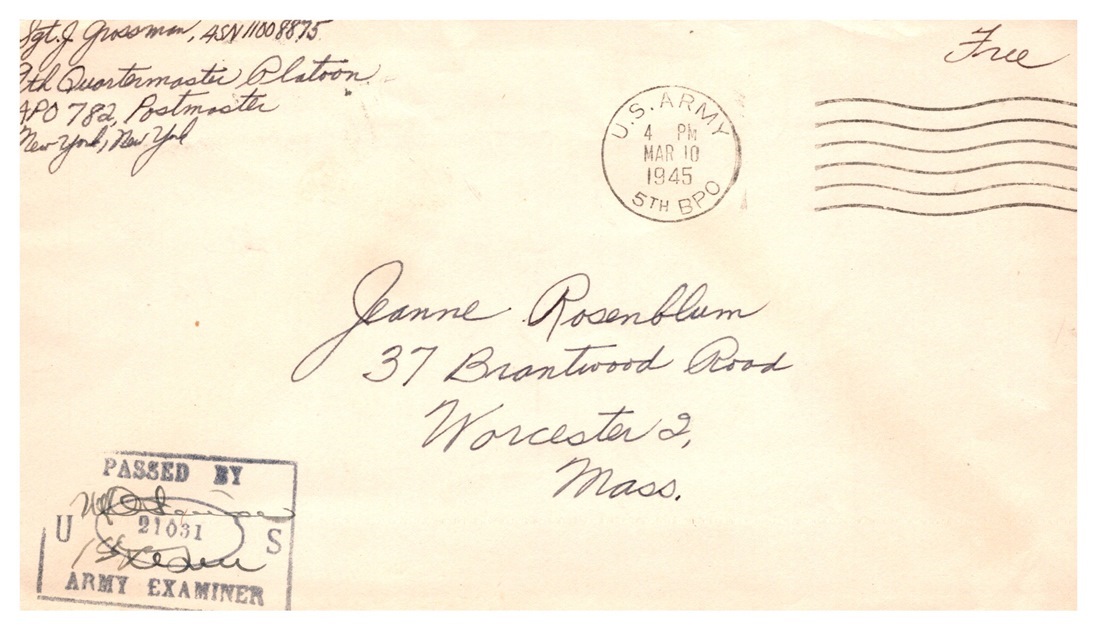 Sgt. J. Grossman, ASN 11008875
9th Quartermaster Platoon
APO 782, Postmaster
New York, New York
Free
U.S. ARMY
4 PM
MAR 10
1945
5TH BPO
Jeanne Rosenblum
37 Brantwood Road
Worcester 2,
Mass.
PASSED BY
U 21031 S
ARMY EXAMINER